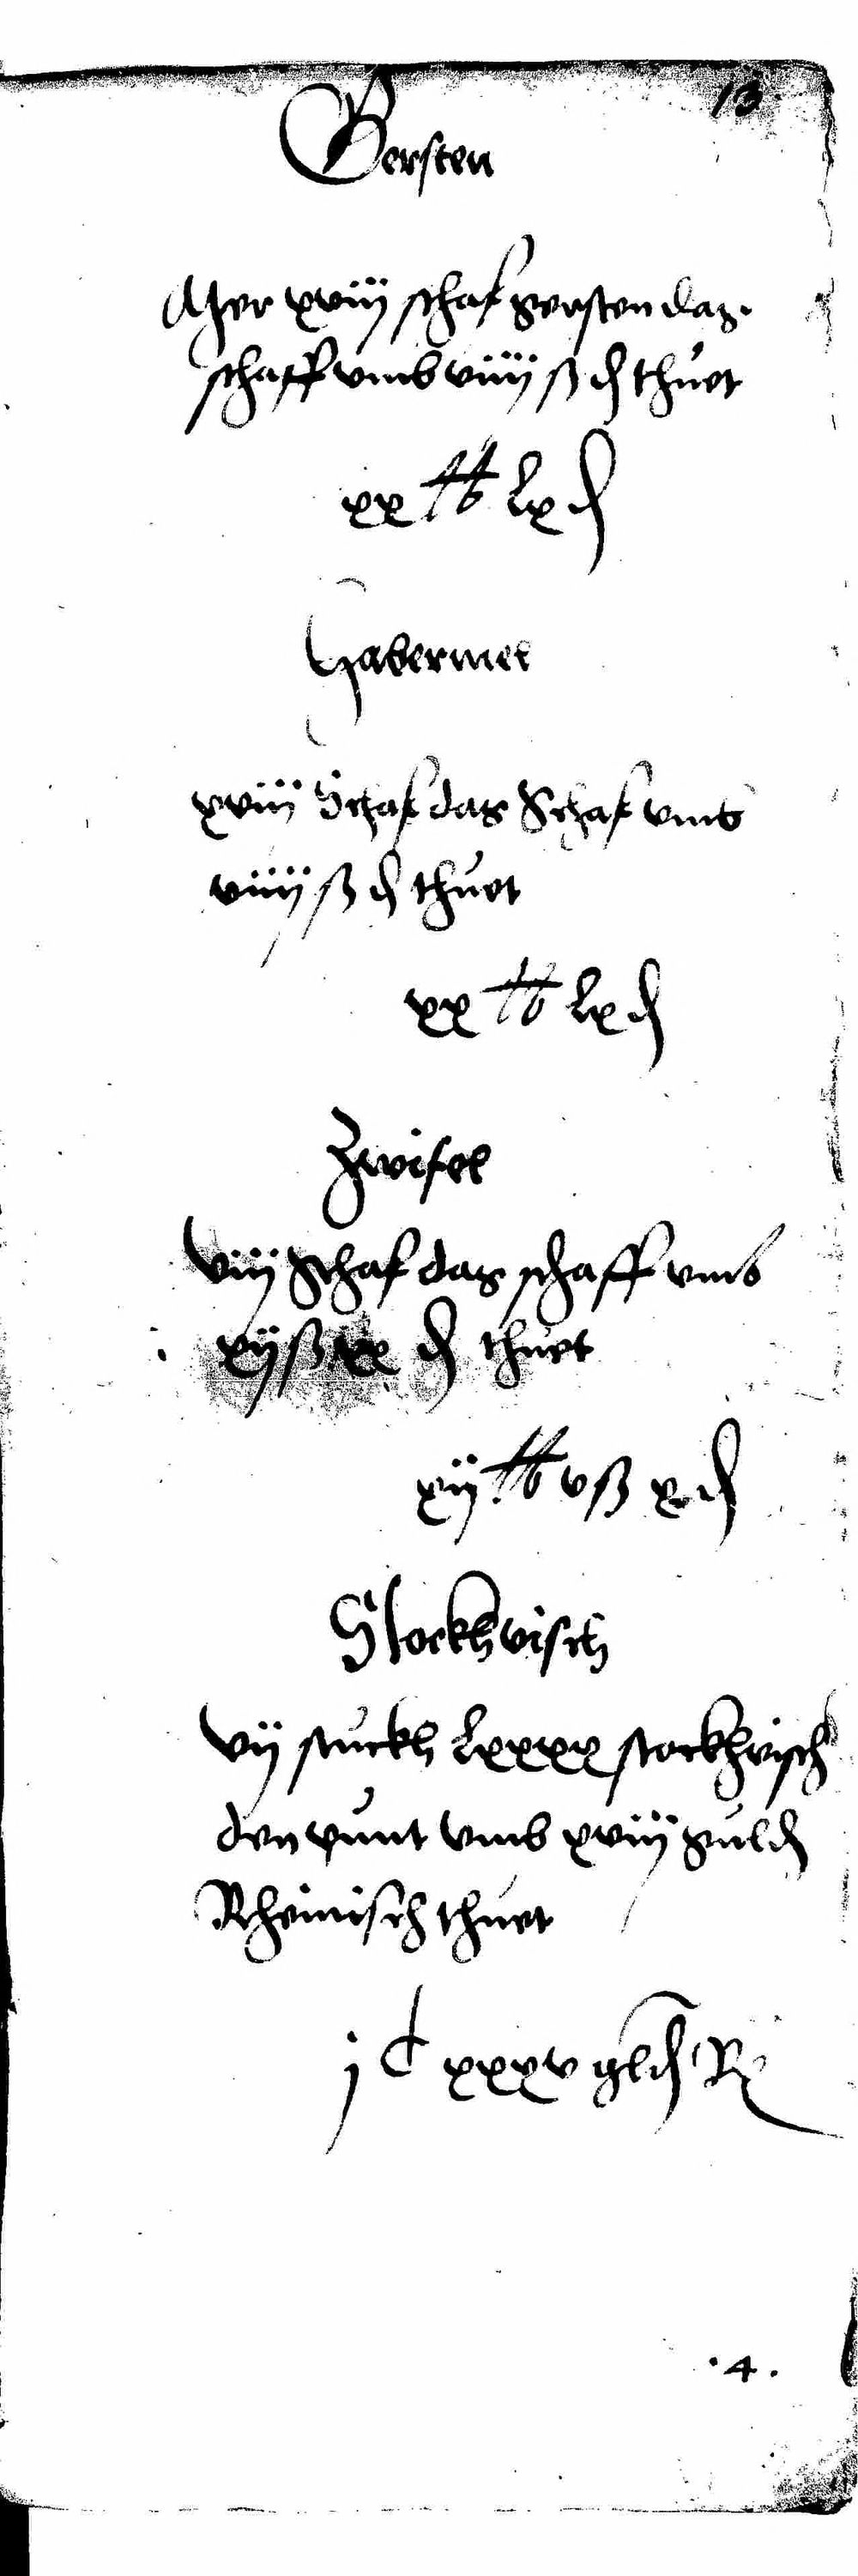 13
Gersten
Mer xviij schaf gersten das
schaff vmb viiij ß d thuet
xx lb lx d
Habermel
xviij Schaf das Schaf vmb
viiij ß d thuet
xx lb lx d
Zwifel
viij Schaf das schaff vmb
xij ß xx d thuet
xij lb v ß x d
Stockhvisch
vij stuckh lxxxx stockhvisch
den punt vmb xviij guld
Rheinisch thuet
j C xxxv gld R
.4.